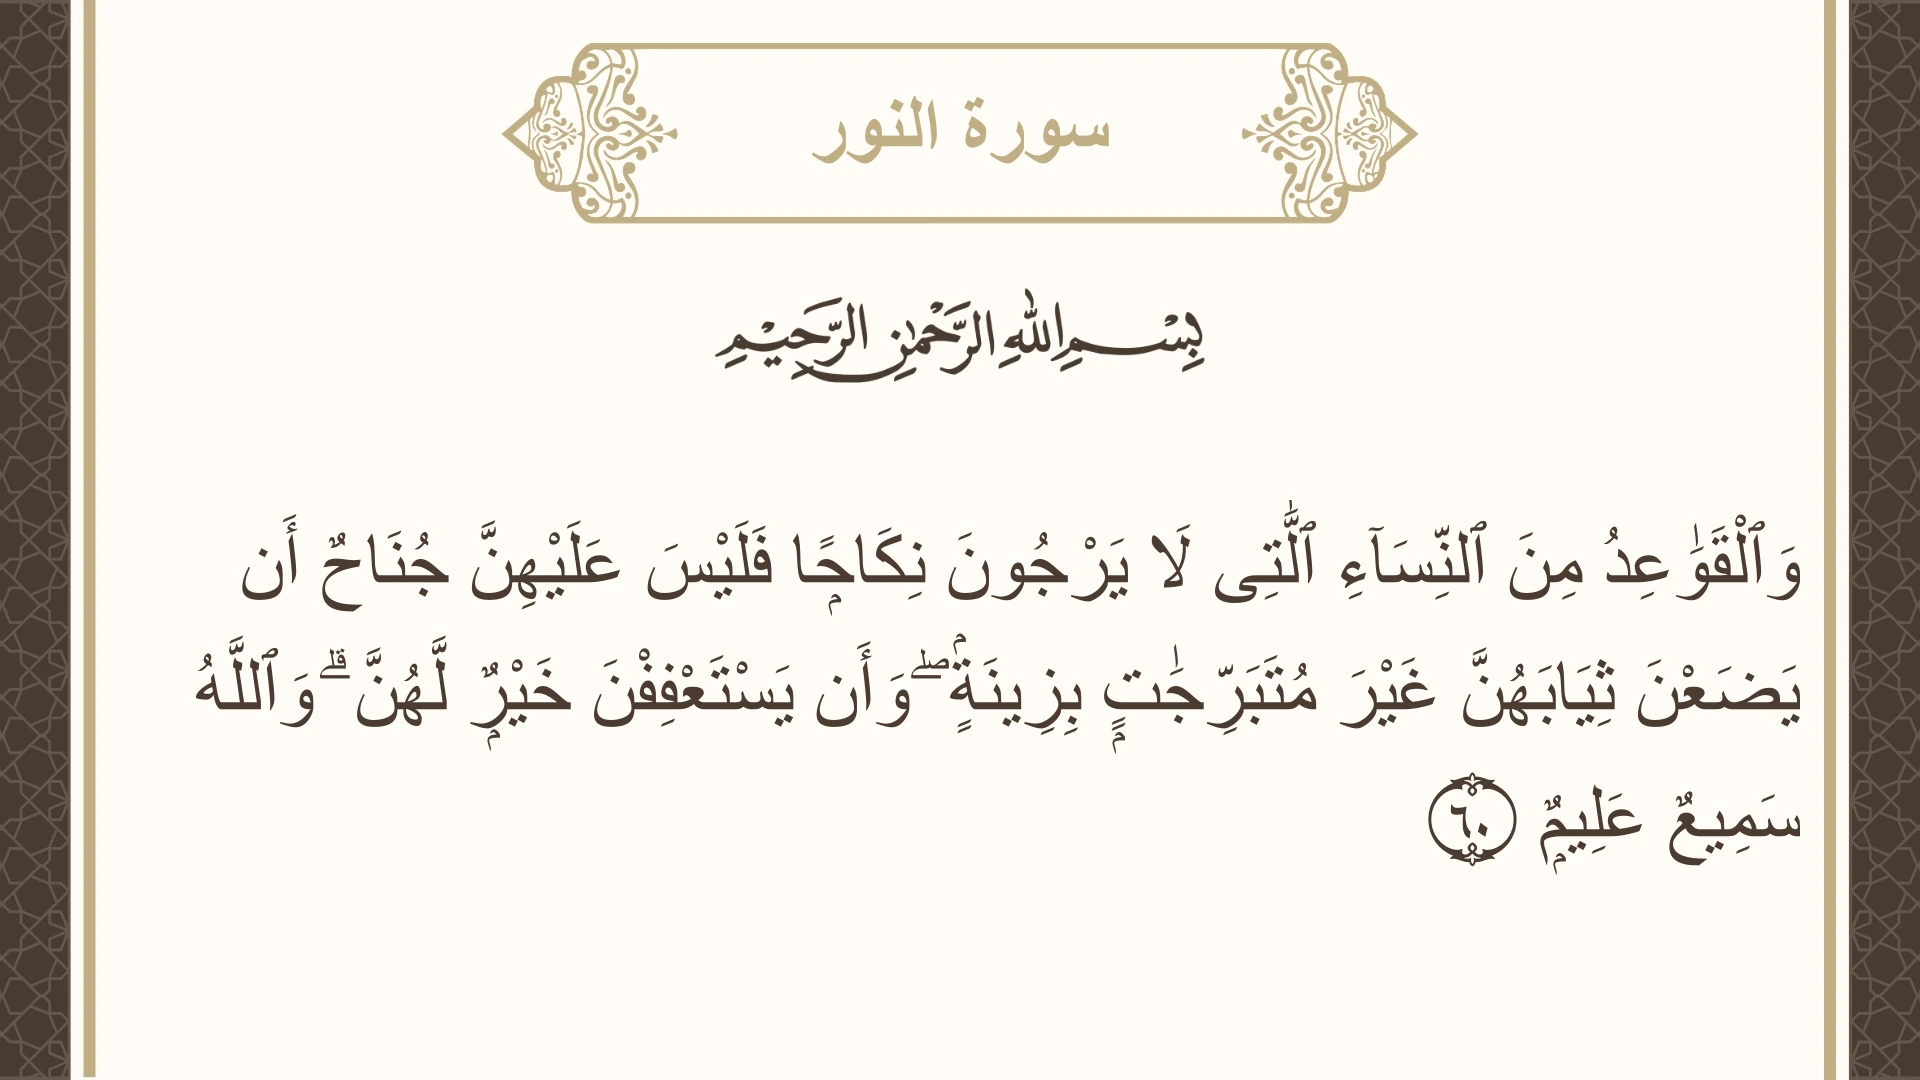 سورة النور
بِسْمِ اللهِ الرَّحْمٰنِ الرَّحِيْمِ
وَٱلْقَوَٰعِدُ مِنَ ٱلنِّسَآءِ ٱلَّٰتِى لَا يَرْجُونَ نِكَاحًۭا فَلَيْسَ عَلَيْهِنَّ جُنَاحٌ أَن
يَضَعْنَ ثِيَابَهُنَّ غَيْرَ مُتَبَرِّجَٰتٍۭ بِزِينَةٍۢ ۖ وَأَن يَسْتَعْفِفْنَ خَيْرٌۭ لَّهُنَّ ۗ وَٱللَّهُ
سَمِيعٌ عَلِيمٌۭ ٦٠